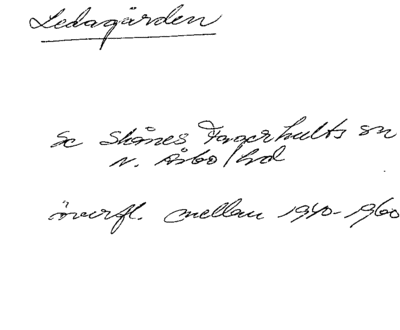 Ledagården
Sc Skånes Fagerhults sn
N. Åsbo hd
överfl. mellan 1940-1960